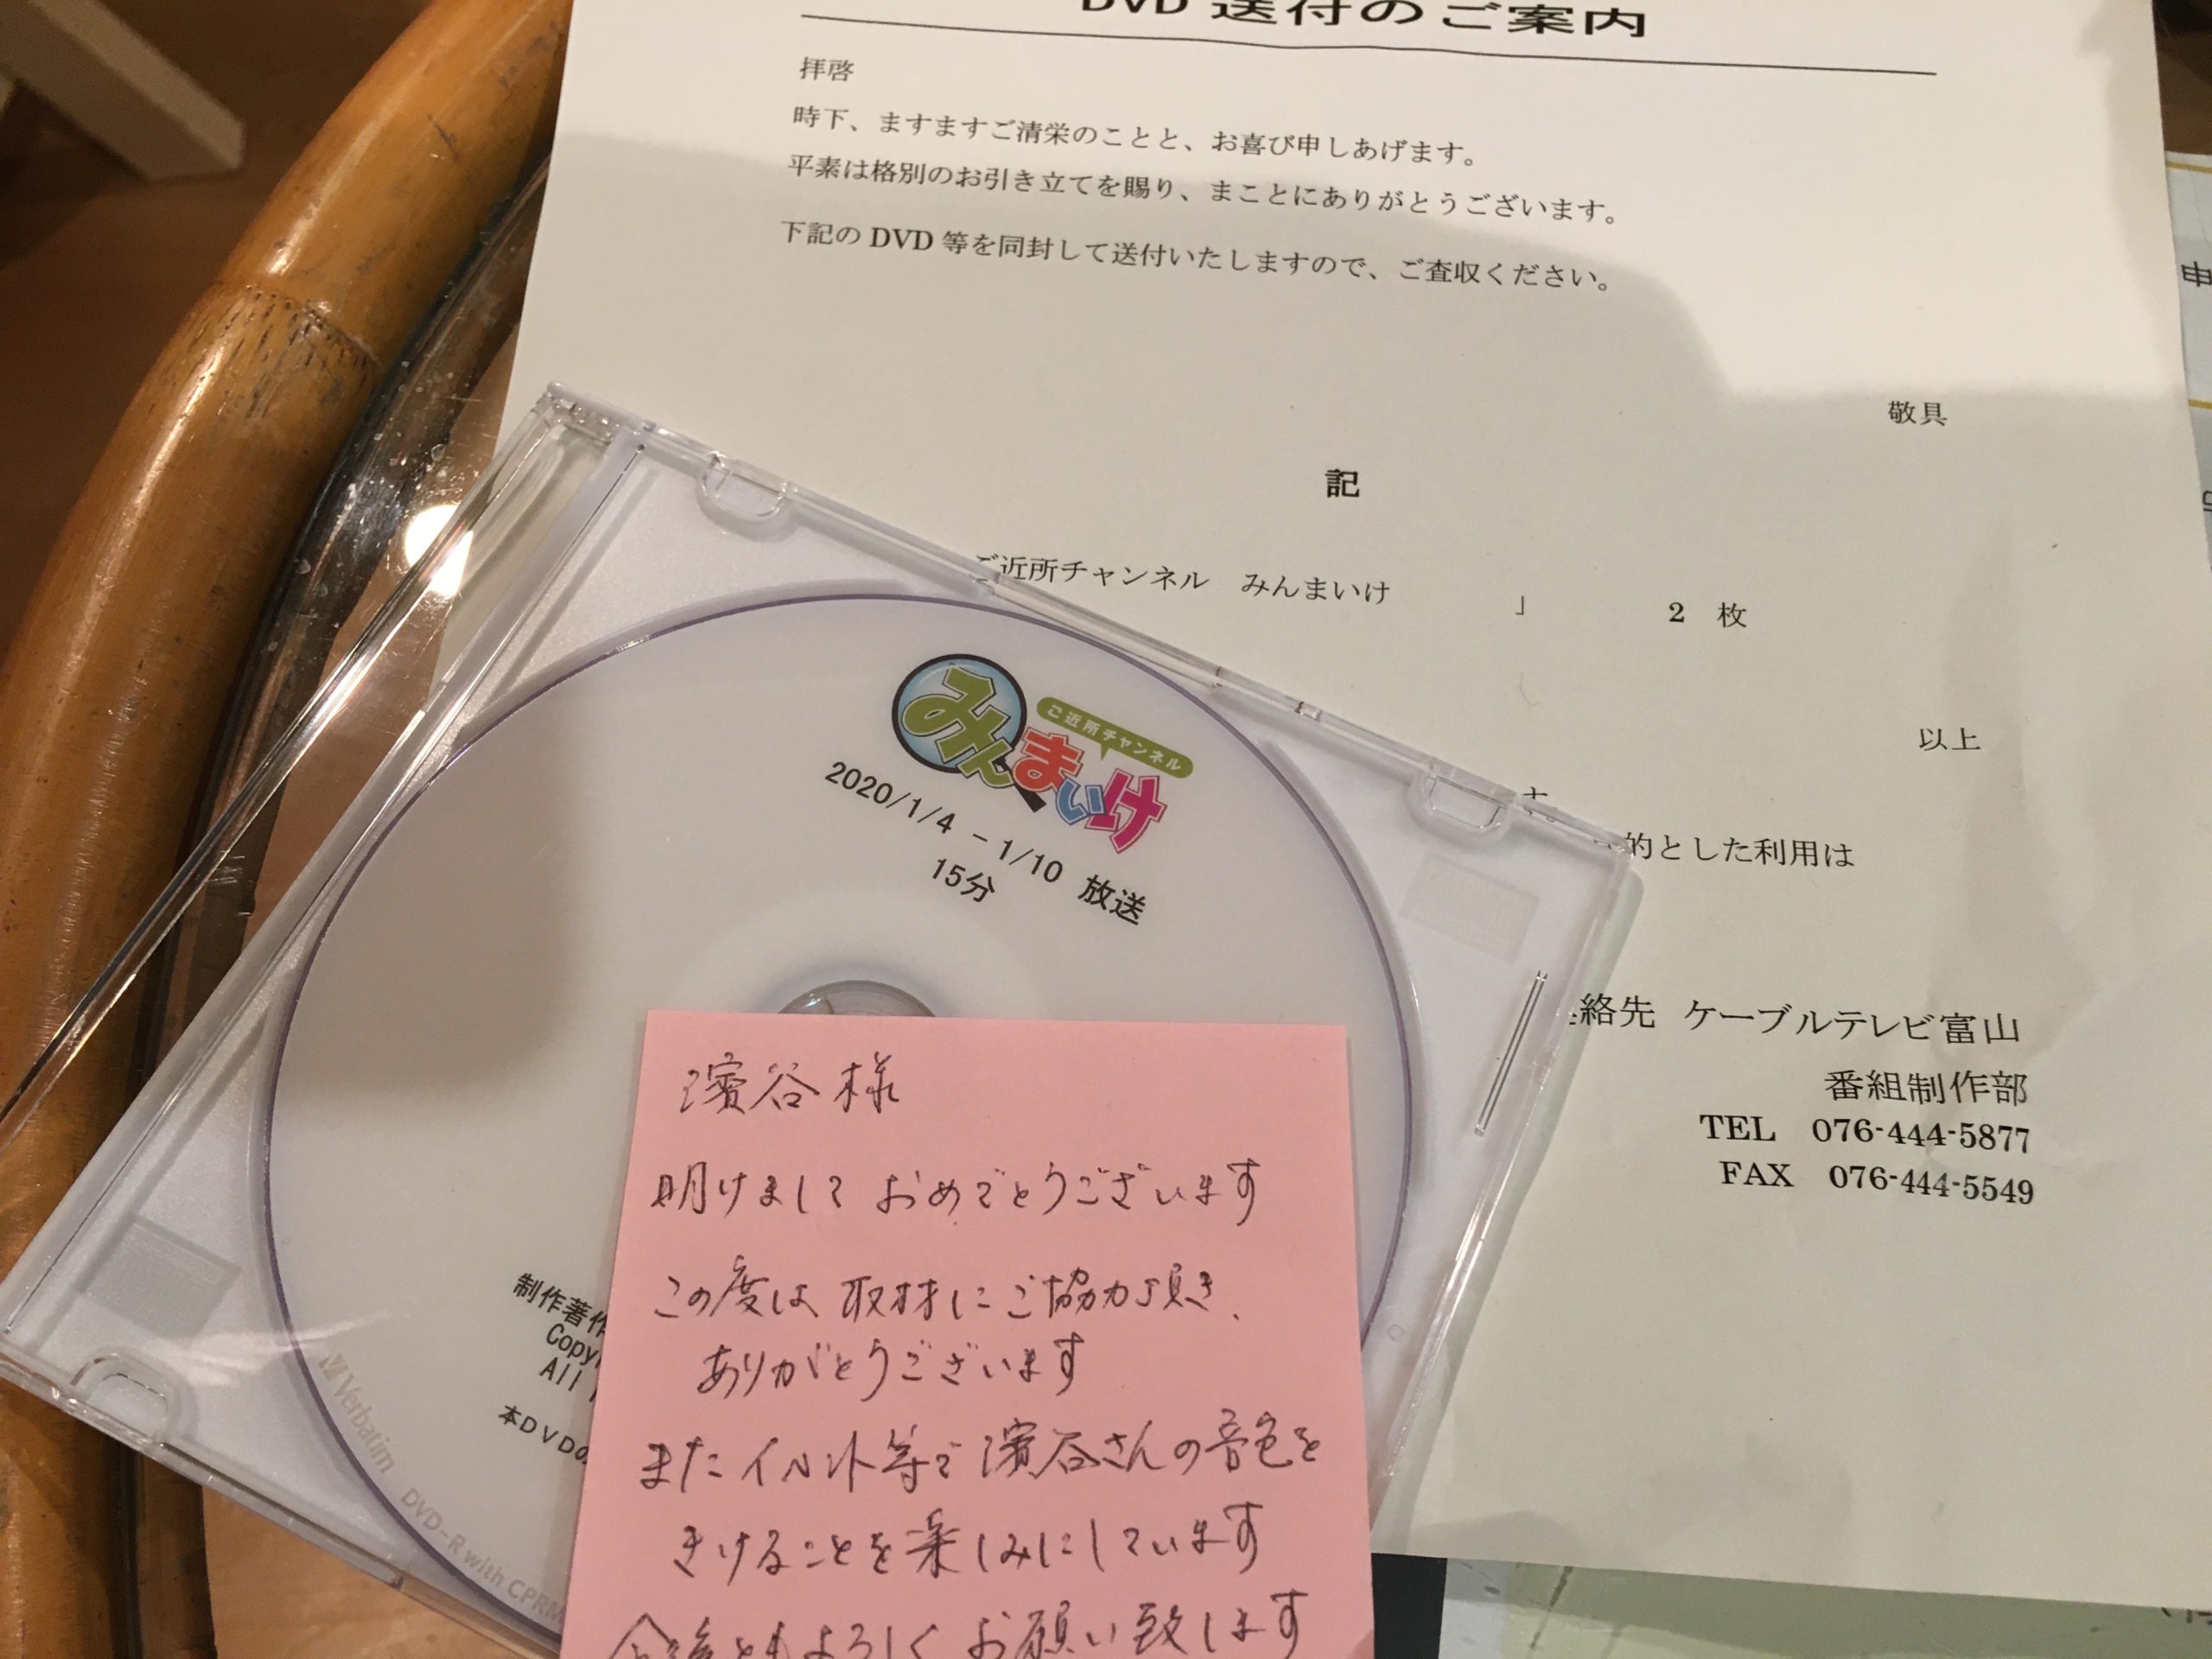 DVD 送付のご案内
拝啓
時下、ますますご清栄のことと、お喜び申しあげます。
平素は格別のお引き立てを賜り、まことにありがとうございます。
下記の DVD 等を同封して送付いたしますので、ご査収ください。
敬具
記
ご近所チャンネル　みんまいけ　」　2 枚
以上
す。
的とした利用は
絡先 ケーブルテレビ富山
番組制作部
TEL 076-444-5877
FAX 076-444-5549
ご近所チャンネル
みんまいけ
2020/1/4 - 1/10 放送
15分
制作著作
Copy
All
本DVDの
Verbatim
DVD-R with CPRM
濱谷様
明けまして おめでとうございます
この度は 取材に ご協力頂き、
ありがとうございます
また イベント等で 濱谷さんの音色を
きけることを楽しみにしています
今後ともよろしく お願い致します
申